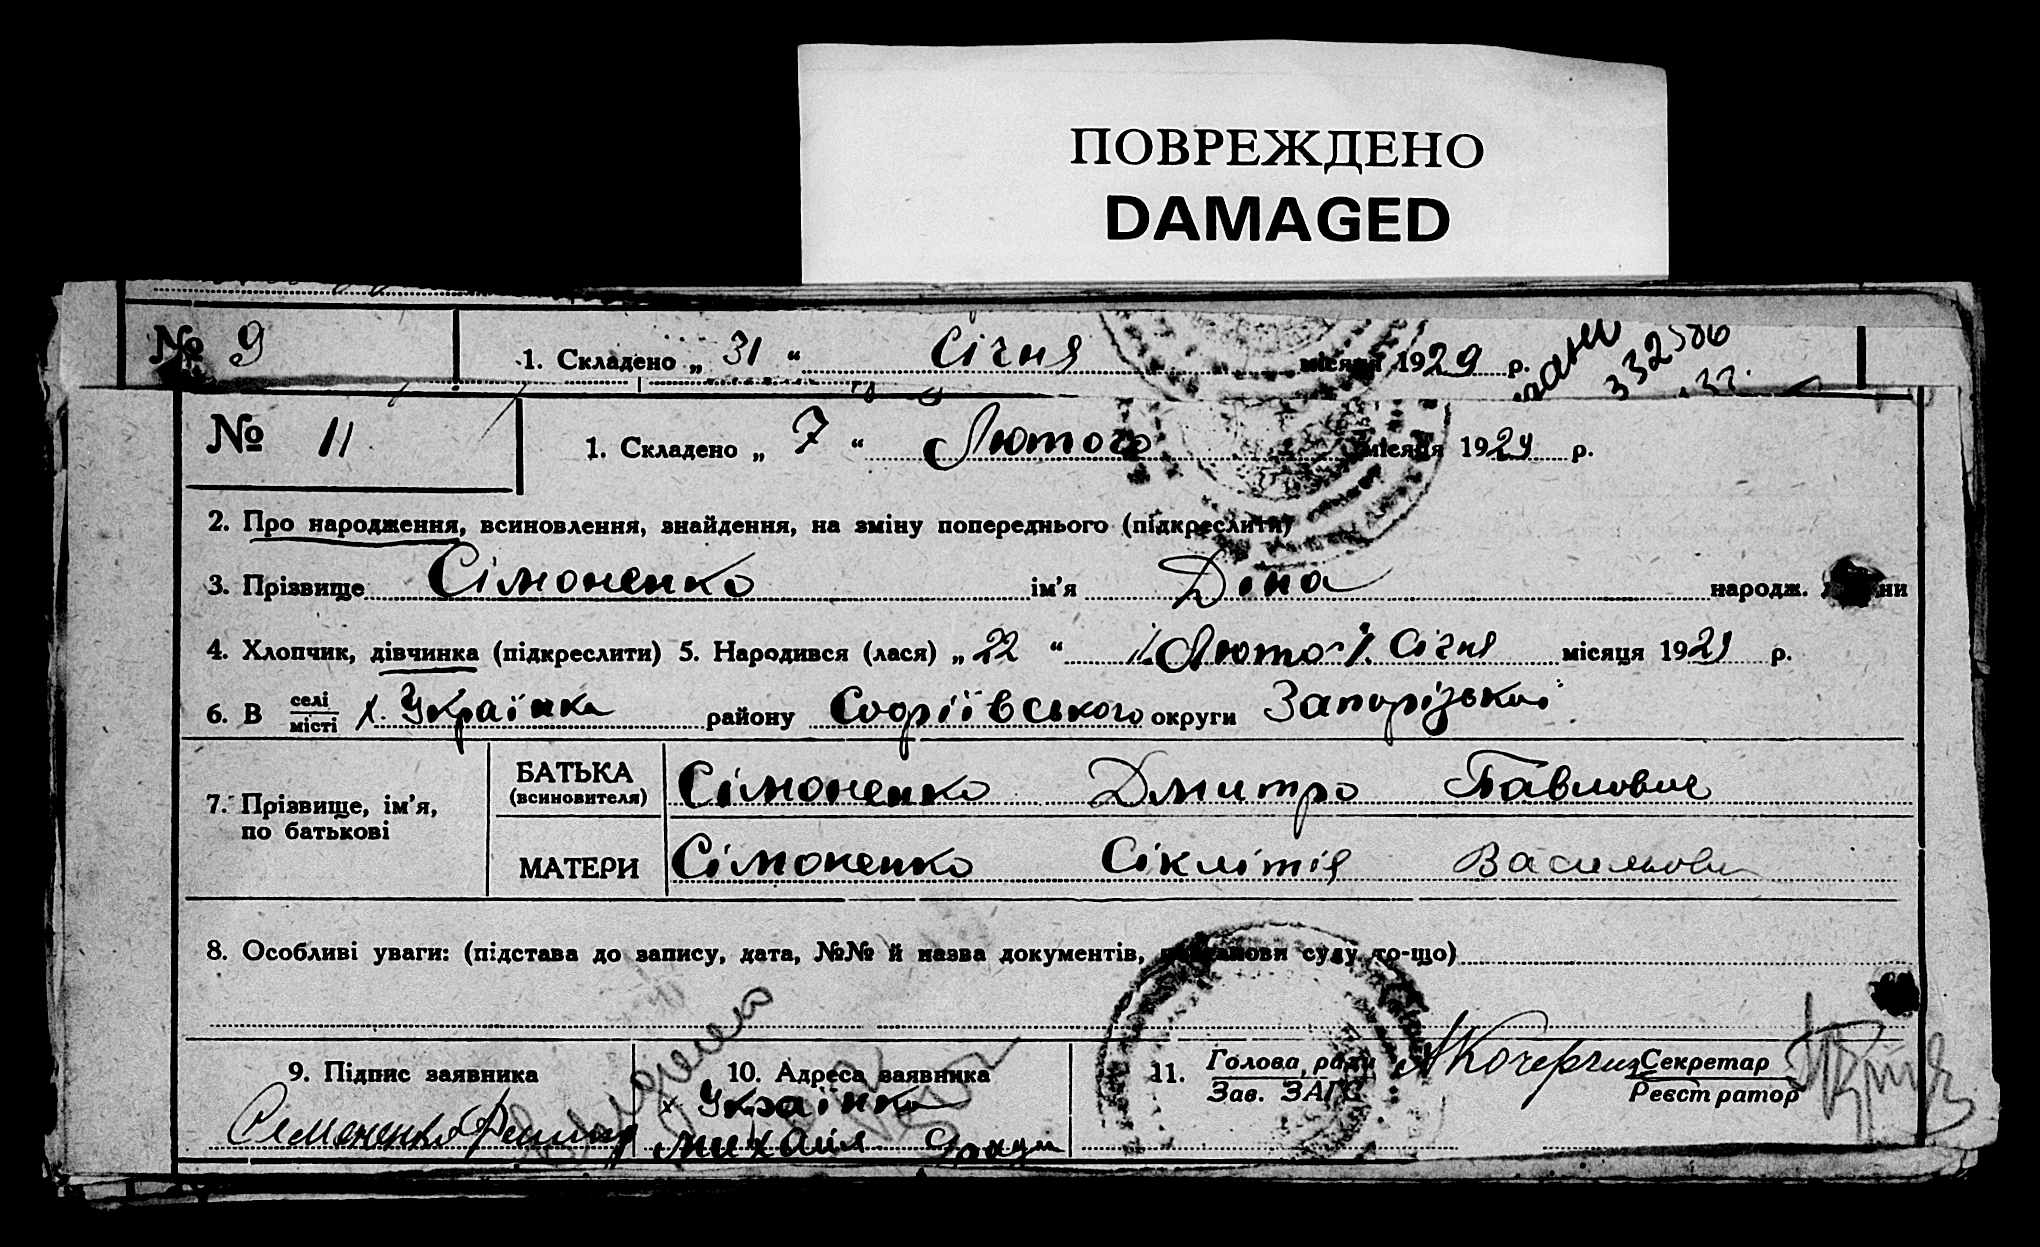 ПОВРЕЖДЕНО
DAMAGED
№ 9 1. Складено „ 31 “ Січня місяця 1929 р.
№ 11 1. Складено „ 7 “ Лютого місяця 1929 р.
2. Про народження, всиновлення, знайдення, на зміну попереднього (підкреслити)
3. Прізвище Сімоненко ім’я Діна народж.
4. Хлопчик, дівчинка (підкреслити) 5. Народився (лася) „ 22 “ Люто Січня місяця 1929 р.
6. В селі місті х. Українка району Софіївського округи Запорізької
7. Прізвище, ім’я, по батькові
БАТЬКА (всиновителя) Сімоненко Дмитро Павлович
МАТЕРИ Сімоненко Сіклітія
8. Особливі уваги: (підстава до запису, дата, №№ й назва документів, постанови суду то-що)
9. Підпис заявника 10. Адреса заявника 11. Голова ради Зав. ЗАГС Секретар Реєстратор
Сімоненко х Українка